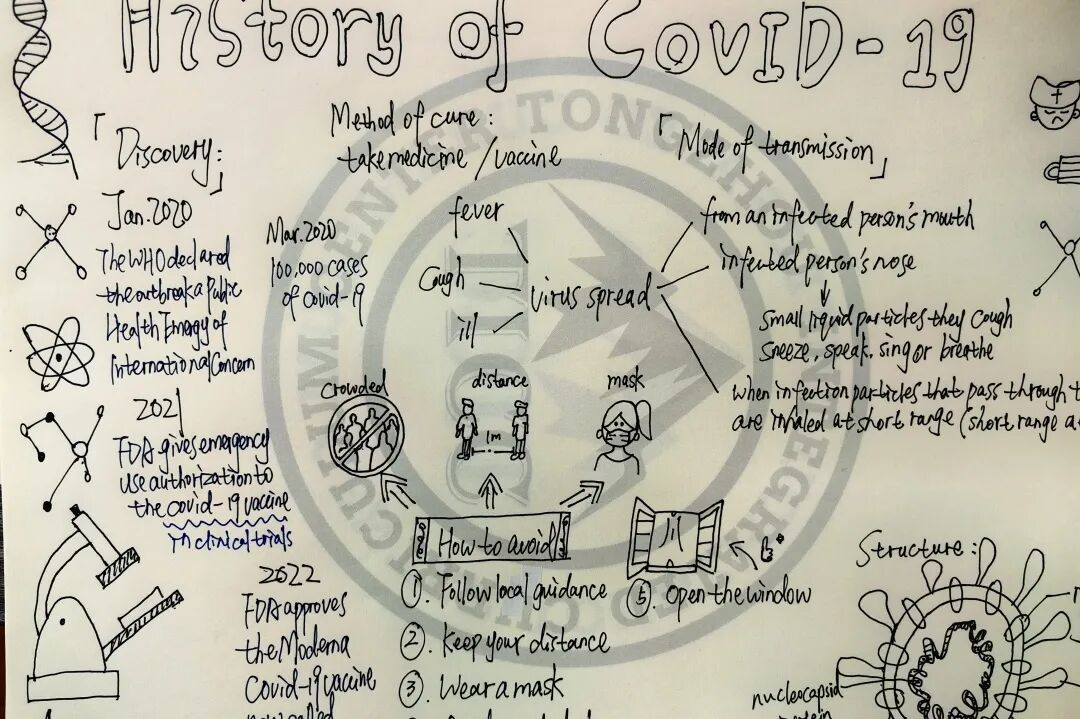 History of CovID-19
「Discovery:」
Jan.2020
The WHO declared
the outbreak a Public
Health Emergy of
International Concern
Mar.2020
100,000 cases
of covid-19
2021
FDA gives emergency
use authorization to
the covid-19 vaccine
in clinical trials
2022
FDA approves
the Moderna
Covid-19 vaccine
now called
Method of cure:
take medicine / vaccine
「Mode of transmission」
fever
Cough
ill
Virus spread
from an infected person's mouth
infected person's nose
Small liquid particles they cough
sneeze, speak, sing or breathe
when infection particles that pass through t
are inhaled at short range (short range a
Crowded
distance
1m
mask
How to avoid
①. Follow local guidance
②. Keep your distance
③. Wear a mask
⑤. Open the window
Structure:
nucleocapsid
protein
TMCC